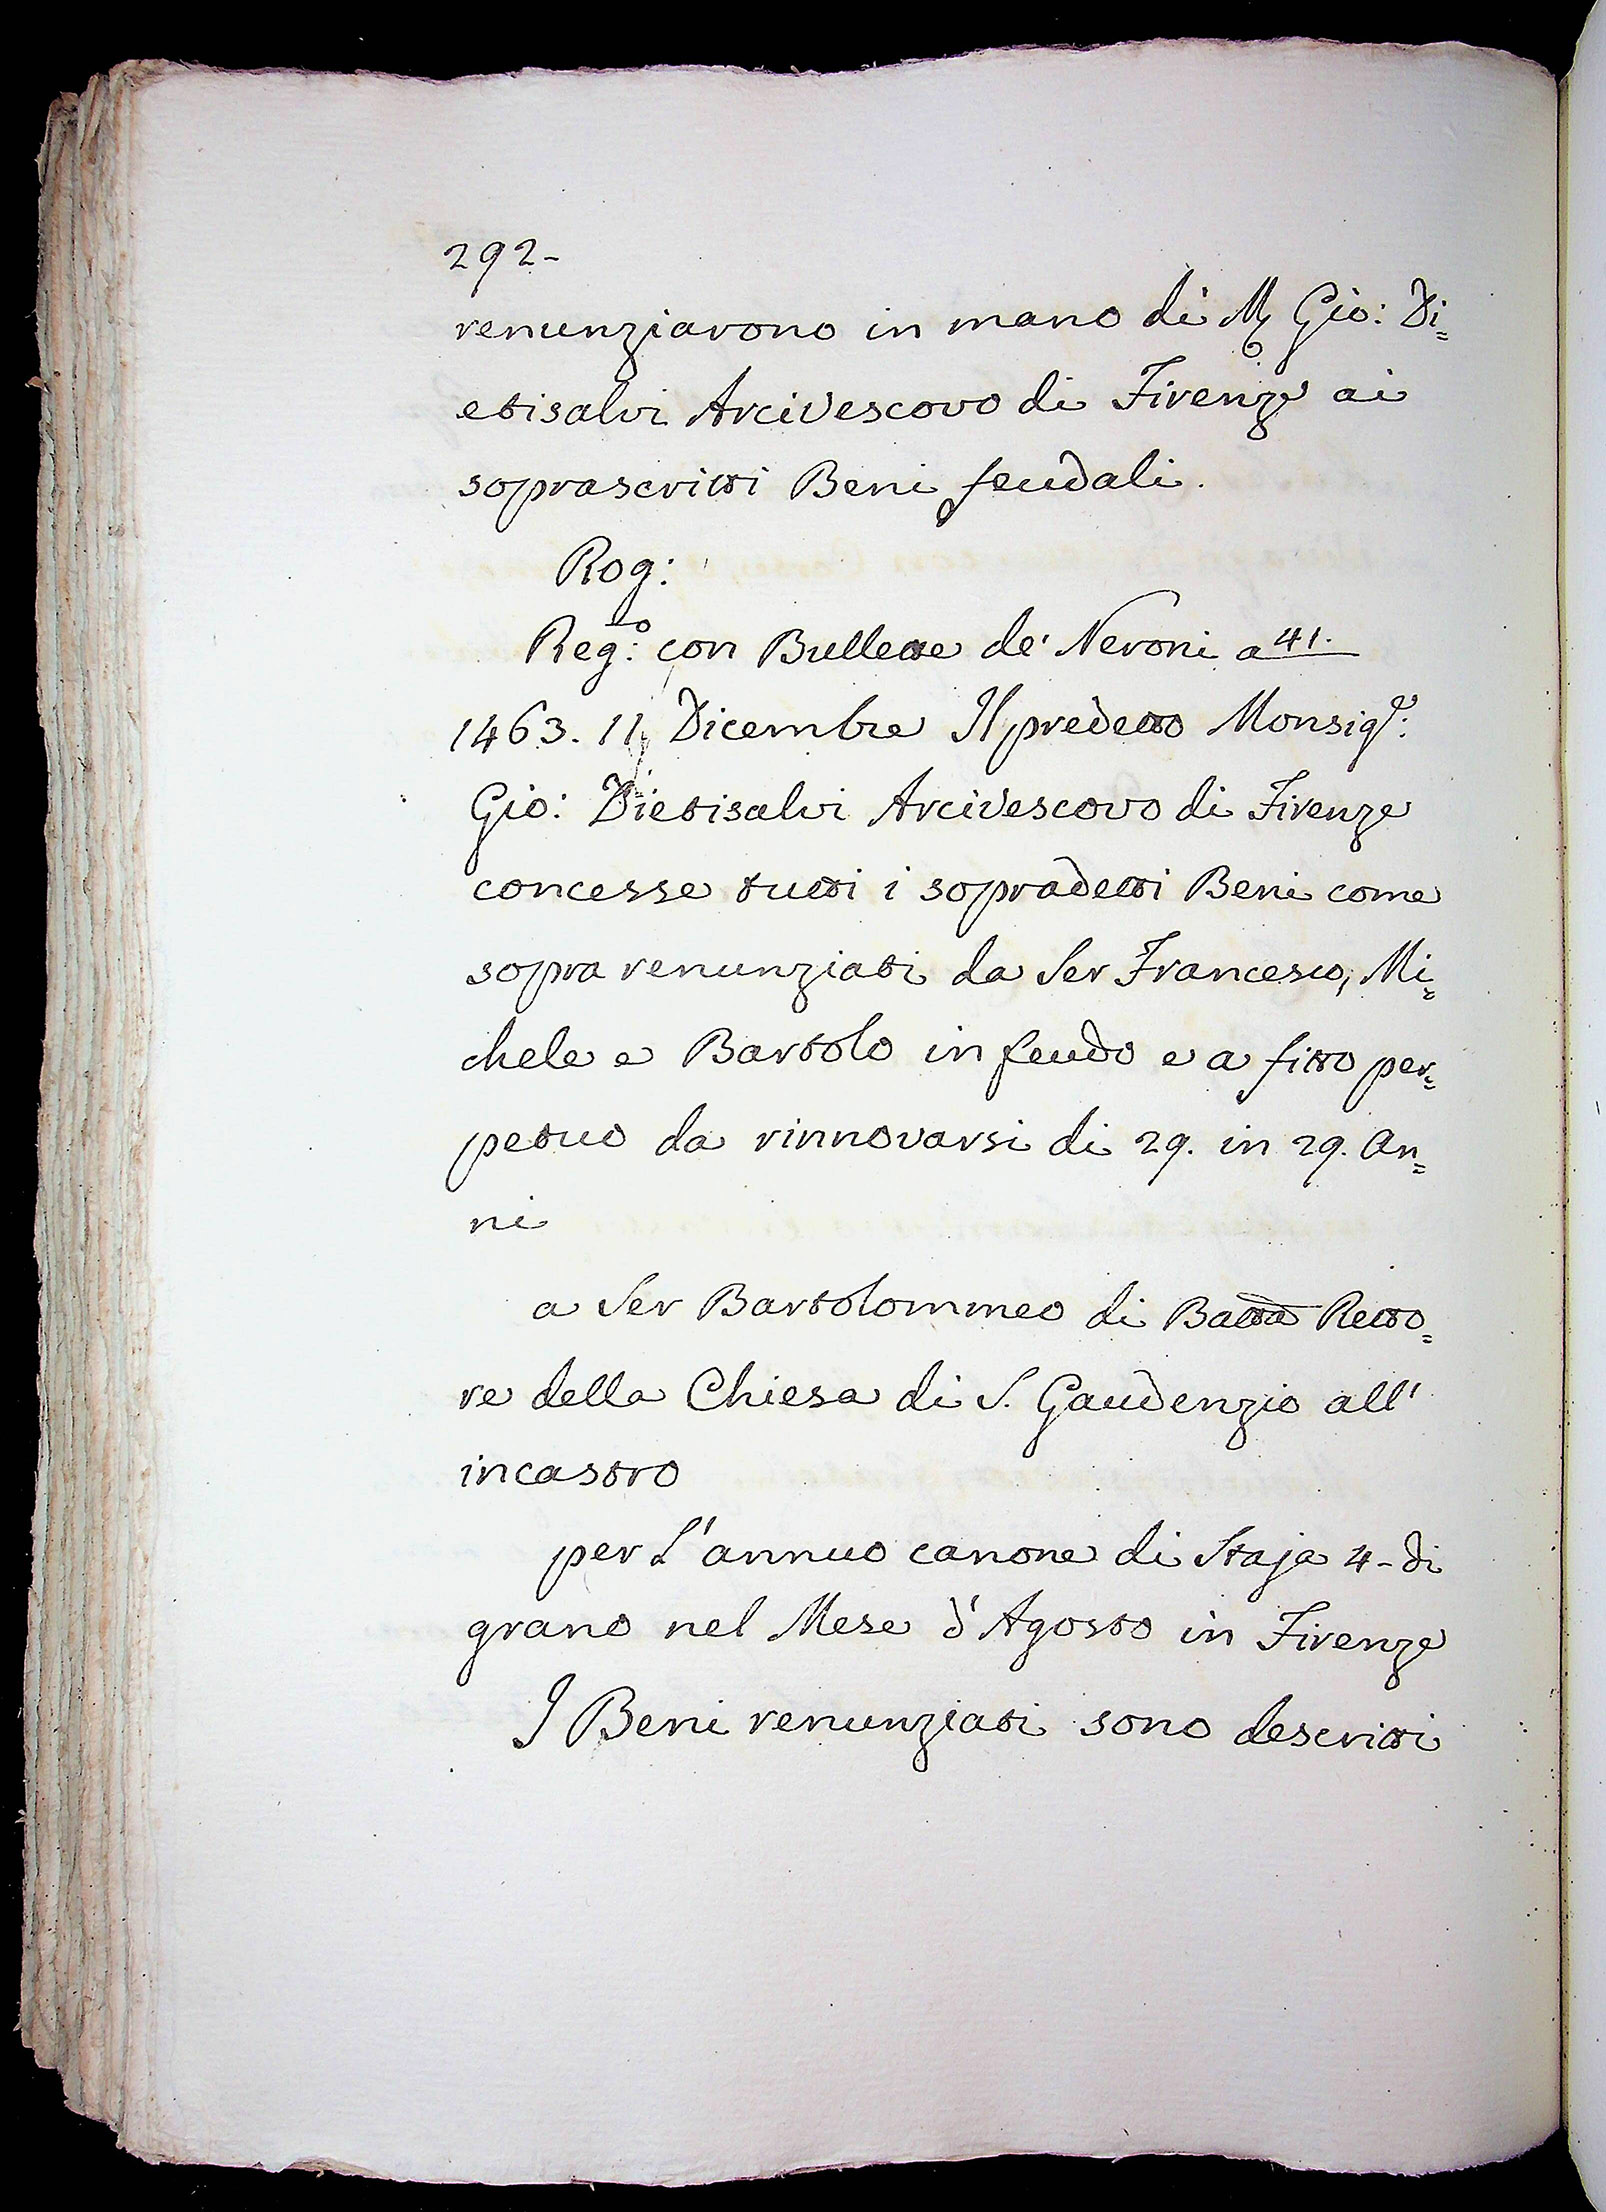 292-
renunziarono in mano di M Gio: Di=
etisalvi Arcivescovo di Firenze ai
soprascritti Beni feudali.
Rog:
Reg:o con Bullette de' Neroni a 41.
1463. 11 Dicembre Il predetto Monsig:r
Gio: Dietisalvi Arcivescovo di Firenze
concesse tutti i sopradetti Beni come
sopra renunziati da Ser Francesco, Mi=
chele e Bartolo in feudo e a fitto per=
petuo da rinnovarsi di 29. in 29. An=
ni
a Ser Bartolommeo di Batta Retto=
re della Chiesa di S. Gaudenzio all'
incastro
per L'annuo canone di Staja 4- di
grano nel Mese d'Agosto in Firenze
I Beni renunziati sono descritti